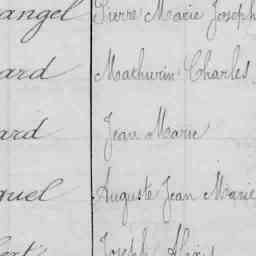 angel Pierre Marie Joseph
ard Mathurin Charles
ard Jean Marie
uel Auguste Jean Marie
bert Joseph Alexis